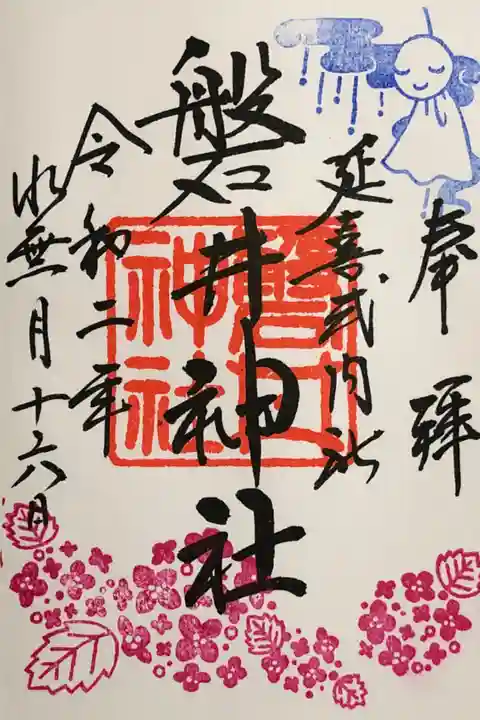 奉拝
延喜式内社
磐井神社
令和二年
水無月十六日
磐井神社